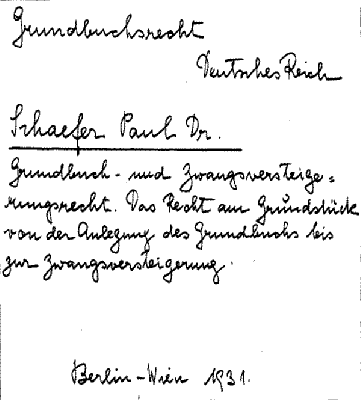 Grundbuchsrecht
Deutsches Reich
Schaefer Paul Dr.
Grundbuch- und Zwangsversteige=
rungsrecht. Das Recht am Grundstück
von der Anlegung des Grundbuchs bis
zur Zwangsversteigerung.
Berlin-Wien 1931.